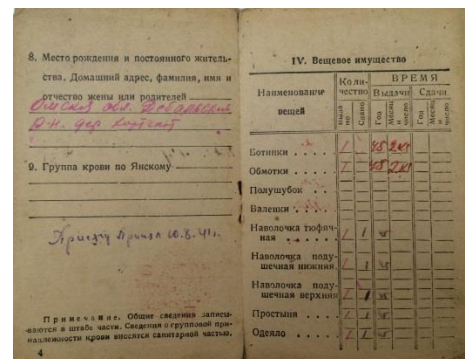 8. Место рождения и постоянного житель-
ства. Домашний адрес, фамилия, имя и
отчество жены или родителей
Омская обл.
Р-н. дер.
9. Группа крови по Янскому
Присягу принял 10.8.41г.
Примечание. Общие сведения записы-
ваются в штабе части. Сведения о групповой при-
надлежности крови вносятся санитарной частью.
4
IV. Вещевое имущество
Наименование
вещей
Коли-
чество
ВРЕМЯ
Выдачи
Сдачи
Выдано
Сдано
Год
Месяц
и
число
Год
Месяц
и
число
Ботинки 1 45
Обмотки 1 45
Полушубок
Валенки
Наволочка тюфяч-
ная 1 1 45
Наволочка поду-
шечная нижняя 1 1 45
Наволочка поду-
шечная верхняя 1 1 45
Простыня 1 1 45
Одеяло 1 1 45